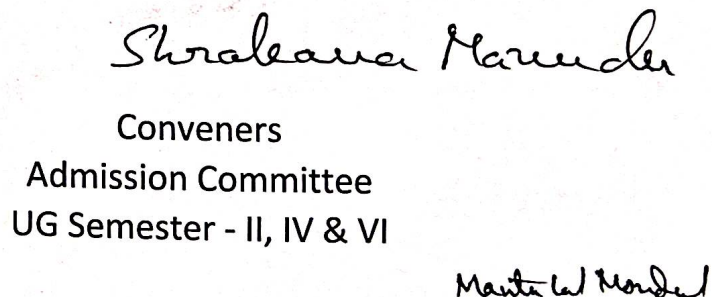 Shrabana Mazumder
Conveners
Admission Committee
UG Semester - II, IV & VI
Mantu Lal Mondal